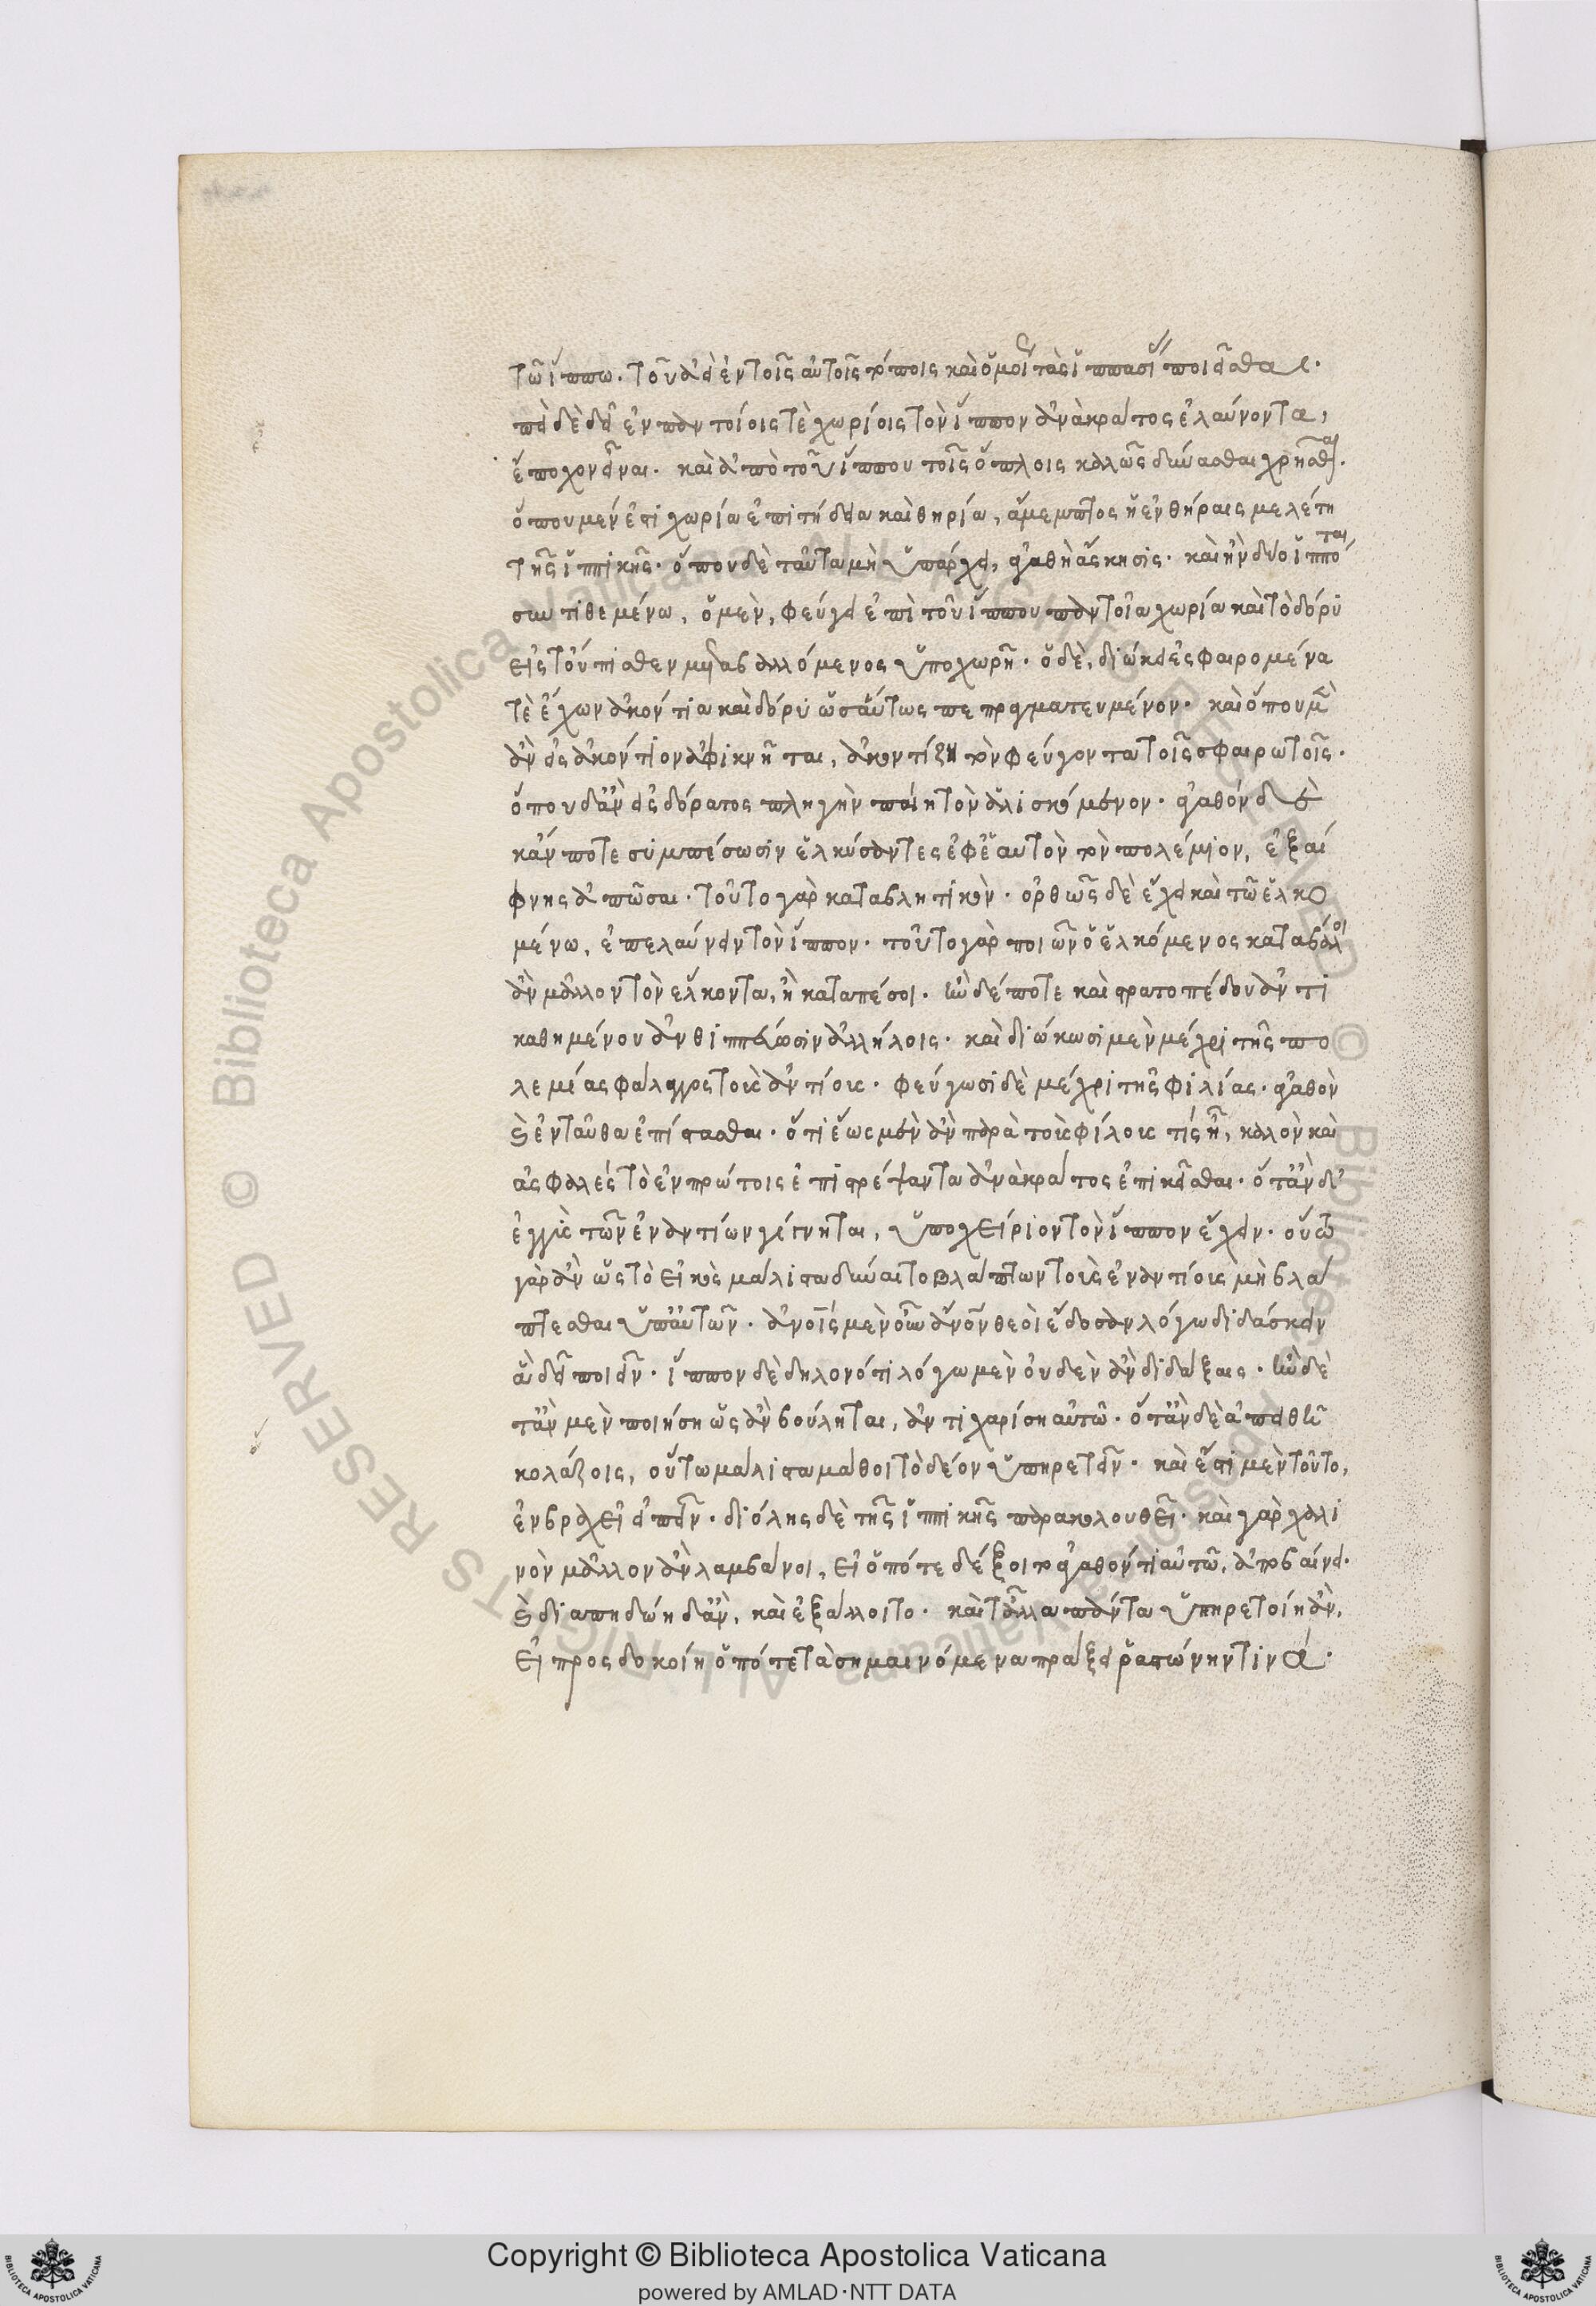 τῶ ἵππω. τοῦ ἀεὶ ἐν τοῖς αὐτοῖς τόποις καὶ ὁμοί τὰς ἱππασί ποιεῖσθαι.
ἐπεὶ δὲ δεῖ ἐν παντοίοις τὲ χωρίοις τὸν ἵππον ἀνὰ κράτος ἐλαύνοντα,
ἔποχον εἶναι. καὶ ἀπὸ τοῦ ἵππου τοῖς ὅπλοις καλῶς δύνασθαι χρῆσθαι.
ὅπου μέν ἐστι χωρία ἐπιτήδεια καὶ θηρία, ἄμεμπτος ἡ ἐν θήραις μελέτη
τῆς ἱππικῆς. ὅπου δὲ ταῦτα μὴ ὑπάρχει, ἀγαθὴ ἄσκησις. καὶ ἢν δύο ἱππότα
συντιθεμένω, ὁ μὲν, φεύγει ἐπὶ τοῦ ἵππου παντοῖα χωρία καὶ τὸ δόρυ
εἰς τοὔπισθεν μεταβαλλόμενος ὑποχωρῆ. ὁ δὲ, διώκει ἐσφαιρομένα
τὲ ἔχων ἀκόντια καὶ δόρυ ὡσαύτως πεπραγματευμένον. καὶ ὅπου μὲν
ἂν εἰς ἀκόντιον ἀφικνῆται, ἀκοντίζη τὸν φεύγοντα τοῖς σφαιρωτοῖς.
ὅπου δ' ἂν εἰς δόρατος πληγὴν παίη τὸν ἁλισκόμενον. ἀγαθὸν δὲ
κἄν ποτε συμπέσωσιν ἑλκύσαντες ἐφ' ἑαυτὸν τὸν πολέμιον, ἐξαί
φνης ἀπῶσαι. τοῦτο γὰρ καταβλητικὸν. ὀρθῶς δὲ ἔχει καὶ τῶ ἑλκο
μένω, ἐπελαύνειν τὸν ἵππον. τοῦτο γὰρ ποιῶν ὁ ἑλκόμενος καταβάλοι
ἂν μᾶλλον τὸν ἕλκοντα, ἢ καταπέσοι. ἢν δέ ποτε καὶ στρατοπέδου ἀντι
καθημένου ἀνθιππεύωσιν ἀλλήλοις. καὶ διώκωσι μὲν μέχρι τῆς πο
λεμίας φάλαγγος τοὺς ἀντίους. φεύγωσι δὲ μέχρι τῆς φιλίας. ἀγαθὸν
καὶ ἐνταῦθα ἐπίστασθαι. ὅτι ἕως μὲν ἂν παρὰ τοὺς φίλους τίς ἦ, καλὸν καὶ
ἀσφαλές τὸ ἐν πρώτοις ἐπιστρέψαντα ἀνὰ κράτος ἐπικεῖσθαι. ὅταν δ'
ἐγγὺς τῶν ἐναντίων γίγνηται, ὑποχείριον τὸν ἵππον ἔχειν. οὕτω
γὰρ ἂν ὡς τὸ εἰκὸς μάλιστα δύναιτο βλάπτων τοὺς ἐναντίους μὴ βλά
πτεσθαι ὑπ' αὐτῶν. ἀνοῖς μὲν οὖν ἄνον θεοὶ ἔδοσαν λόγω διδάσκειν
ἃ δεῖ ποιεῖν. ἵππον δὲ δηλονότι λόγω μὲν οὐδὲν ἂν διδάξαις. ἢν δὲ
τ' ἂν μὲν ποιήση ὡς ἂν βούληται, ἀντιχαρίση αὐτῶ. ὅταν δὲ ἀπειθῆ
κολάζοις, οὕτω μάλιστα μάθοι τὸ δέον ὑπηρετεῖν. καὶ ἔστι μὲν τοῦτο,
ἐν βραχεῖ εἰπεῖν. δι' ὅλης δὲ τῆς ἱππικῆς παρακολουθεῖ. καὶ γὰρ χαλι
νὸν μᾶλλον ἂν λαμβάνοι, εἰ ὁπότε δέξοιτο ἀγαθόν τι αὐτῶ, ἀποβαίνει.
καὶ διαπηδώη δ' ἂν, καὶ ἐξάλλοιτο. καὶ τἄλλα πάντα ὑπηρετοίη ἂν,
εἰ προσδοκοίη ὁπότε τὰ σημαινόμενα πράξει ῥαστώνην τινά.